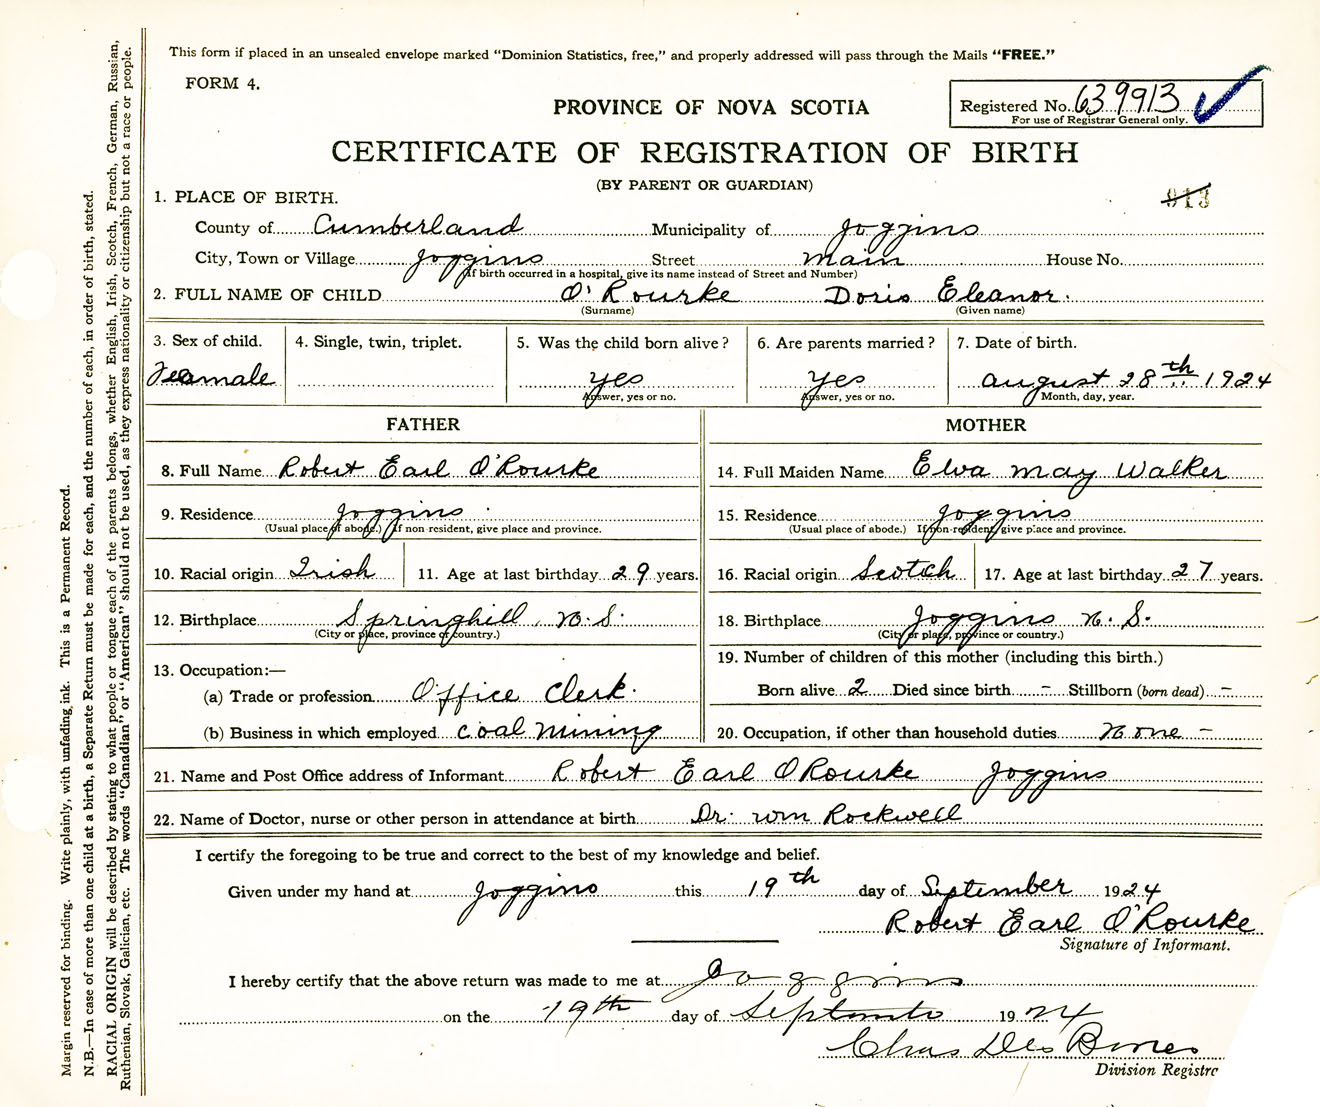 This form if placed in an unsealed envelope marked "Dominion Statistics, free," and properly addressed will pass through the Mails "FREE."
FORM 4.
PROVINCE OF NOVA SCOTIA
Registered No. 639913
For use of Registrar General only.
CERTIFICATE OF REGISTRATION OF BIRTH
(BY PARENT OR GUARDIAN)
913
1. PLACE OF BIRTH.
County of Cumberland Municipality of Joggins
City, Town or Village Joggins Street Main House No.
(If birth occurred in a hospital, give its name instead of Street and Number)
2. FULL NAME OF CHILD O'Rourke Doris Eleanor.
(Surname) (Given name)
3. Sex of child. 4. Single, twin, triplet. 5. Was the child born alive? 6. Are parents married? 7. Date of birth.
Feamale yes yes August 28th 1924
Answer, yes or no. Answer, yes or no. Month, day, year.
FATHER MOTHER
8. Full Name Robert Earl O'Rourke 14. Full Maiden Name Elva May Walker
9. Residence Joggins 15. Residence Joggins
(Usual place of abode.) If non-resident, give place and province. (Usual place of abode.) If non-resident, give place and province.
10. Racial origin Irish 11. Age at last birthday 29 years. 16. Racial origin Scotch 17. Age at last birthday 27 years.
12. Birthplace Springhill, N.S. 18. Birthplace Joggins N.S.
(City or place, province or country.) (City or place, province or country.)
13. Occupation:— 19. Number of children of this mother (including this birth.)
(a) Trade or profession Office Clerk. Born alive 2 Died since birth - Stillborn (born dead) -
(b) Business in which employed Coal Mining 20. Occupation, if other than household duties None -
21. Name and Post Office address of Informant Robert Earl ORourke Joggins
22. Name of Doctor, nurse or other person in attendance at birth Dr. Wm Rockwell
I certify the foregoing to be true and correct to the best of my knowledge and belief.
Given under my hand at Joggins this 19th day of September 1924
Robert Earl O'Rourke
Signature of Informant.
I hereby certify that the above return was made to me at Joggins
on the 19th day of September 1924
Chas Des
Division Registra
Margin reserved for binding. Write plainly, with unfading ink. This is a Permanent Record.
N.B.—In case of more than one child at a birth, a Separate Return must be made for each, and the number of each, in order of birth, stated.
RACIAL ORIGIN will be described by stating to what people or tongue each of the parents belongs, whether English, Irish, Scotch, French, German, Russian,
Ruthenian, Slovak, Galician, etc. The words "Canadian" or "American" should not be used, as they express nationality or citizenship but not a race or people.